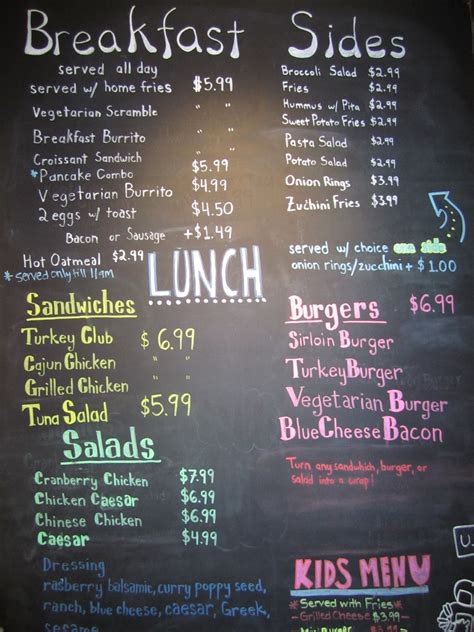 Breakfast
served all day
served w/ home fries $5.99
Vegetarian Scramble " "
Breakfast Burrito " "
Croissant Sandwich $5.99
*Pancake Combo $4.99
Vegetarian Burrito
2 eggs w/ toast $4.50
Bacon or Sausage +$1.49
Hot Oatmeal $2.99
*served only till 11am
Sides
Broccoli Salad $2.99
Fries $2.99
Hummus w/ Pita $2.99
Sweet Potato Fries $2.99
Pasta Salad $2.99
Potato Salad $2.99
Onion Rings $3.99
Zuchini Fries $3.99
served w/ choice one side
onion rings/zucchini + $1.00
LUNCH
Sandwiches
Turkey Club $6.99
Cajun Chicken " "
Grilled Chicken "
Tuna Salad $5.99
Salads
Cranberry Chicken $7.99
Chicken Caesar $6.99
Chinese Chicken $6.99
Caesar $4.99
Dressing
rasberry balsamic, curry poppy seed,
ranch, blue cheese, caesar, Greek,
sesame
Burgers $6.99
Sirloin Burger
Turkey Burger
Vegetarian Burger
Blue Cheese Bacon
Turn any sandwhich, burger, or
salad into a wrap!
KIDS MENU
*Served with Fries*
-Grilled Cheese $3.99-